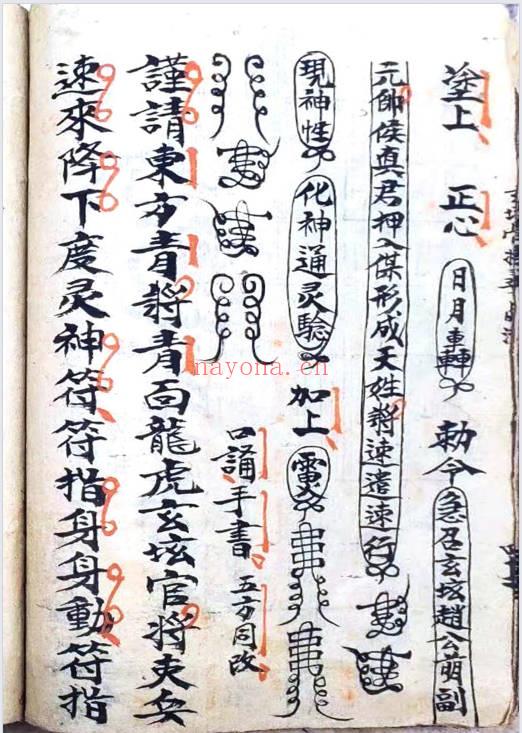 塗上 正心 日月轟 勅令 急召玄坛趙公萌副
元帥侯真君押入形成天姓將速遣速行
現神性 化神通灵驗 加上 電
口誦手書 五方同改
謹請東方青將青面龍虎玄坛官將夫兵
速來降下度灵神符符指身身動符指
nayona.cn